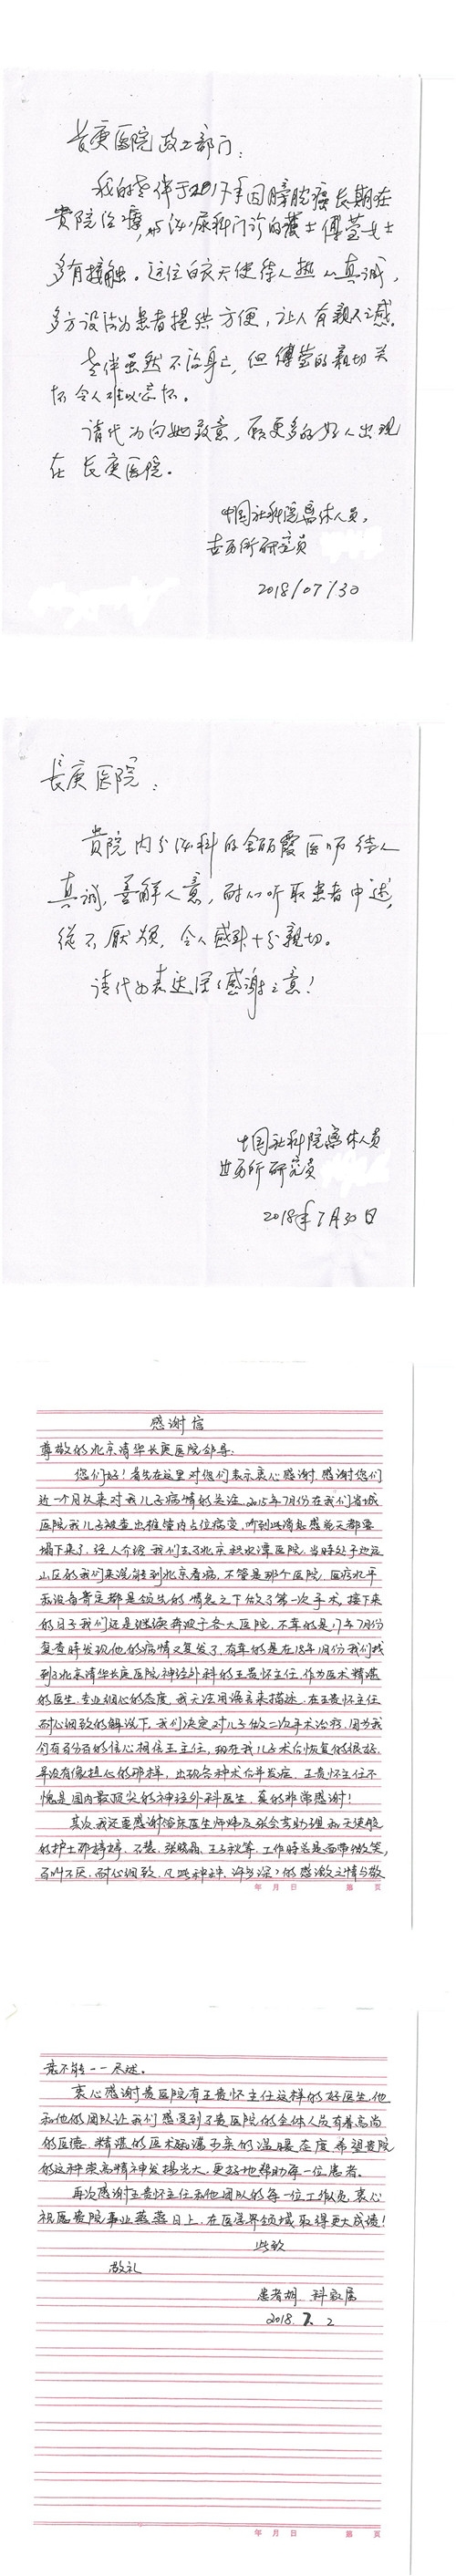 长庚医院政工部门：
我的老伴于2017年因膀胱癌长期在
贵院治疗，与泌尿科门诊的護士傅莹女士
多有接触。这位白衣天使待人热心真诚，
多方设法为患者提供方便，让人有亲人之感。
老伴虽然不治身亡，但傅莹的亲切关
怀令人难以忘怀。
请代为向她致意，愿更多的好人出现
在长庚医院。
中国社科院离休人员，
世历所研究员
2018/07/30
長庚医院：
贵院内分泌科的金丽霞医师待人
真诚，善解人意，耐心听取患者申述，
從不厭烦，令人感到十分親切。
请代为表达深深感谢之意！
中国社科院离休人员
世历所研究员
2018年7月30日
感谢信
尊敬的北京清华长庚医院领导：
您们好！首先在这里对您们表示衷心感谢，感谢您们
近一个月以来对我儿子病情的关注。2015年7月份在我们省城
医院我儿子被查出椎管内占位病变，听到此消息感觉天都要
塌下来了，经人介绍我们去了北京积水潭医院，当时处于边远
山区的我们来说能到北京看病，不管是那个医院，医疗水平
和设备肯定都是领先的，情急之下做了第一次手术，接下来
的日子我们还是继续奔波于各大医院，不幸的是17年7月份
复查时发现他的病情又复发了，有幸的是在18年1月份我们找
到了北京清华长庚医院神经外科的王贵怀主任，作为医术精湛
的医生，专业细心的态度，我无法用语言来描述，在王贵怀主任
耐心细致的解说下，我们决定对儿子做二次手术治疗，因为我
们有百分百的信心相信王主任，现在我儿子术后恢复的很好，
并没有像担心的那样，出现各种术后并发症，王贵怀主任不
愧是国内最顶尖的神经外科医生，真的非常感谢！
其次，我还要感谢管床医生师炜及张会芳助理和天使般
的护士邢婷婷、石慧、张晓晶、王子秋等，工作时总是面带微笑，
百叫不厌，耐心细致，凡此种种，许多深深的感激之情与敬
年 月 日 第 页
意不能一一尽述。
衷心感谢贵医院有王贵怀主任这样的好医生，他
和他的团队让我们感受到了贵医院的全体人员有着高尚
的医德，精湛的医术，和蔼可亲的温暖态度，希望贵院
的这种崇高精神发扬光大，更好地帮助每一位患者。
再次感谢王贵怀主任和他团队的每一位工作人员，衷心
祝愿贵院事业蒸蒸日上，在医学界领域取得更大成绩！
此致
敬礼
患者胡 科家属
2018.7.2
年 月 日 第 页